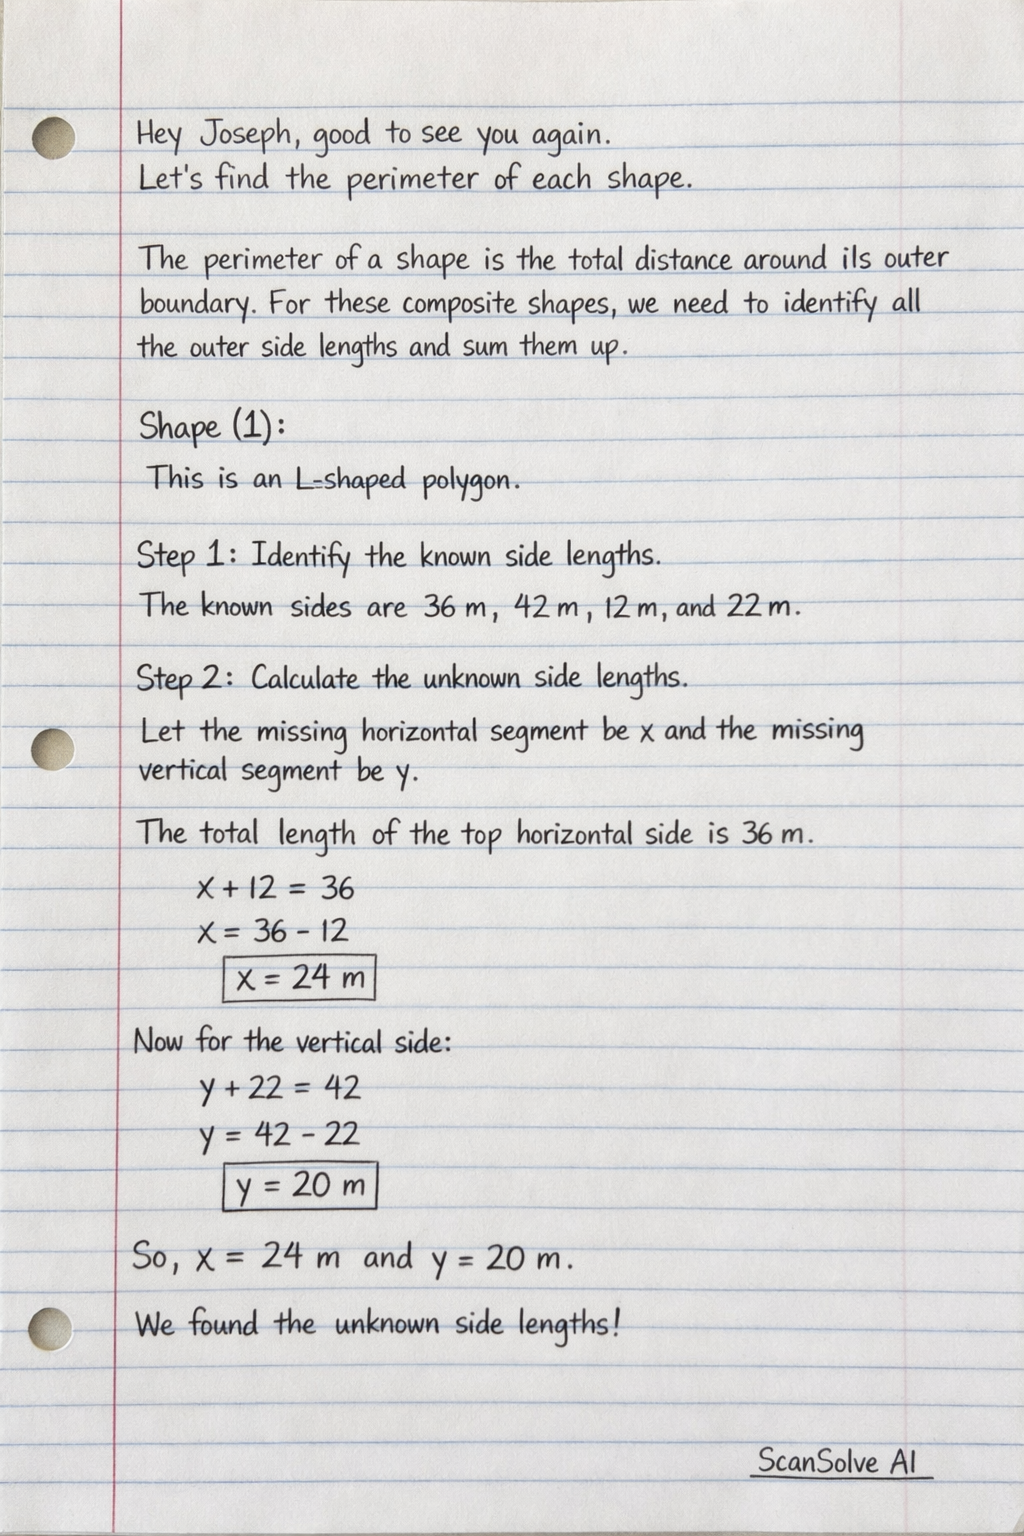 Hey Joseph, good to see you again.
Let's find the perimeter of each shape.
The perimeter of a shape is the total distance around ils outer
boundary. For these composite shapes, we need to identify all
the outer side lengths and sum them up.
Shape (1):
This is an L-shaped polygon.
Step 1: Identify the known side lengths.
The known sides are 36 m, 42 m, 12 m, and 22 m.
Step 2: Calculate the unknown side lengths.
Let the missing horizontal segment be x and the missing
vertical segment be y.
The total length of the top horizontal side is 36 m.
x + 12 = 36
x = 36 - 12
x = 24 m
Now for the vertical side:
y + 22 = 42
y = 42 - 22
y = 20 m
So, x = 24 m and y = 20 m.
We found the unknown side lengths!
ScanSolve AI